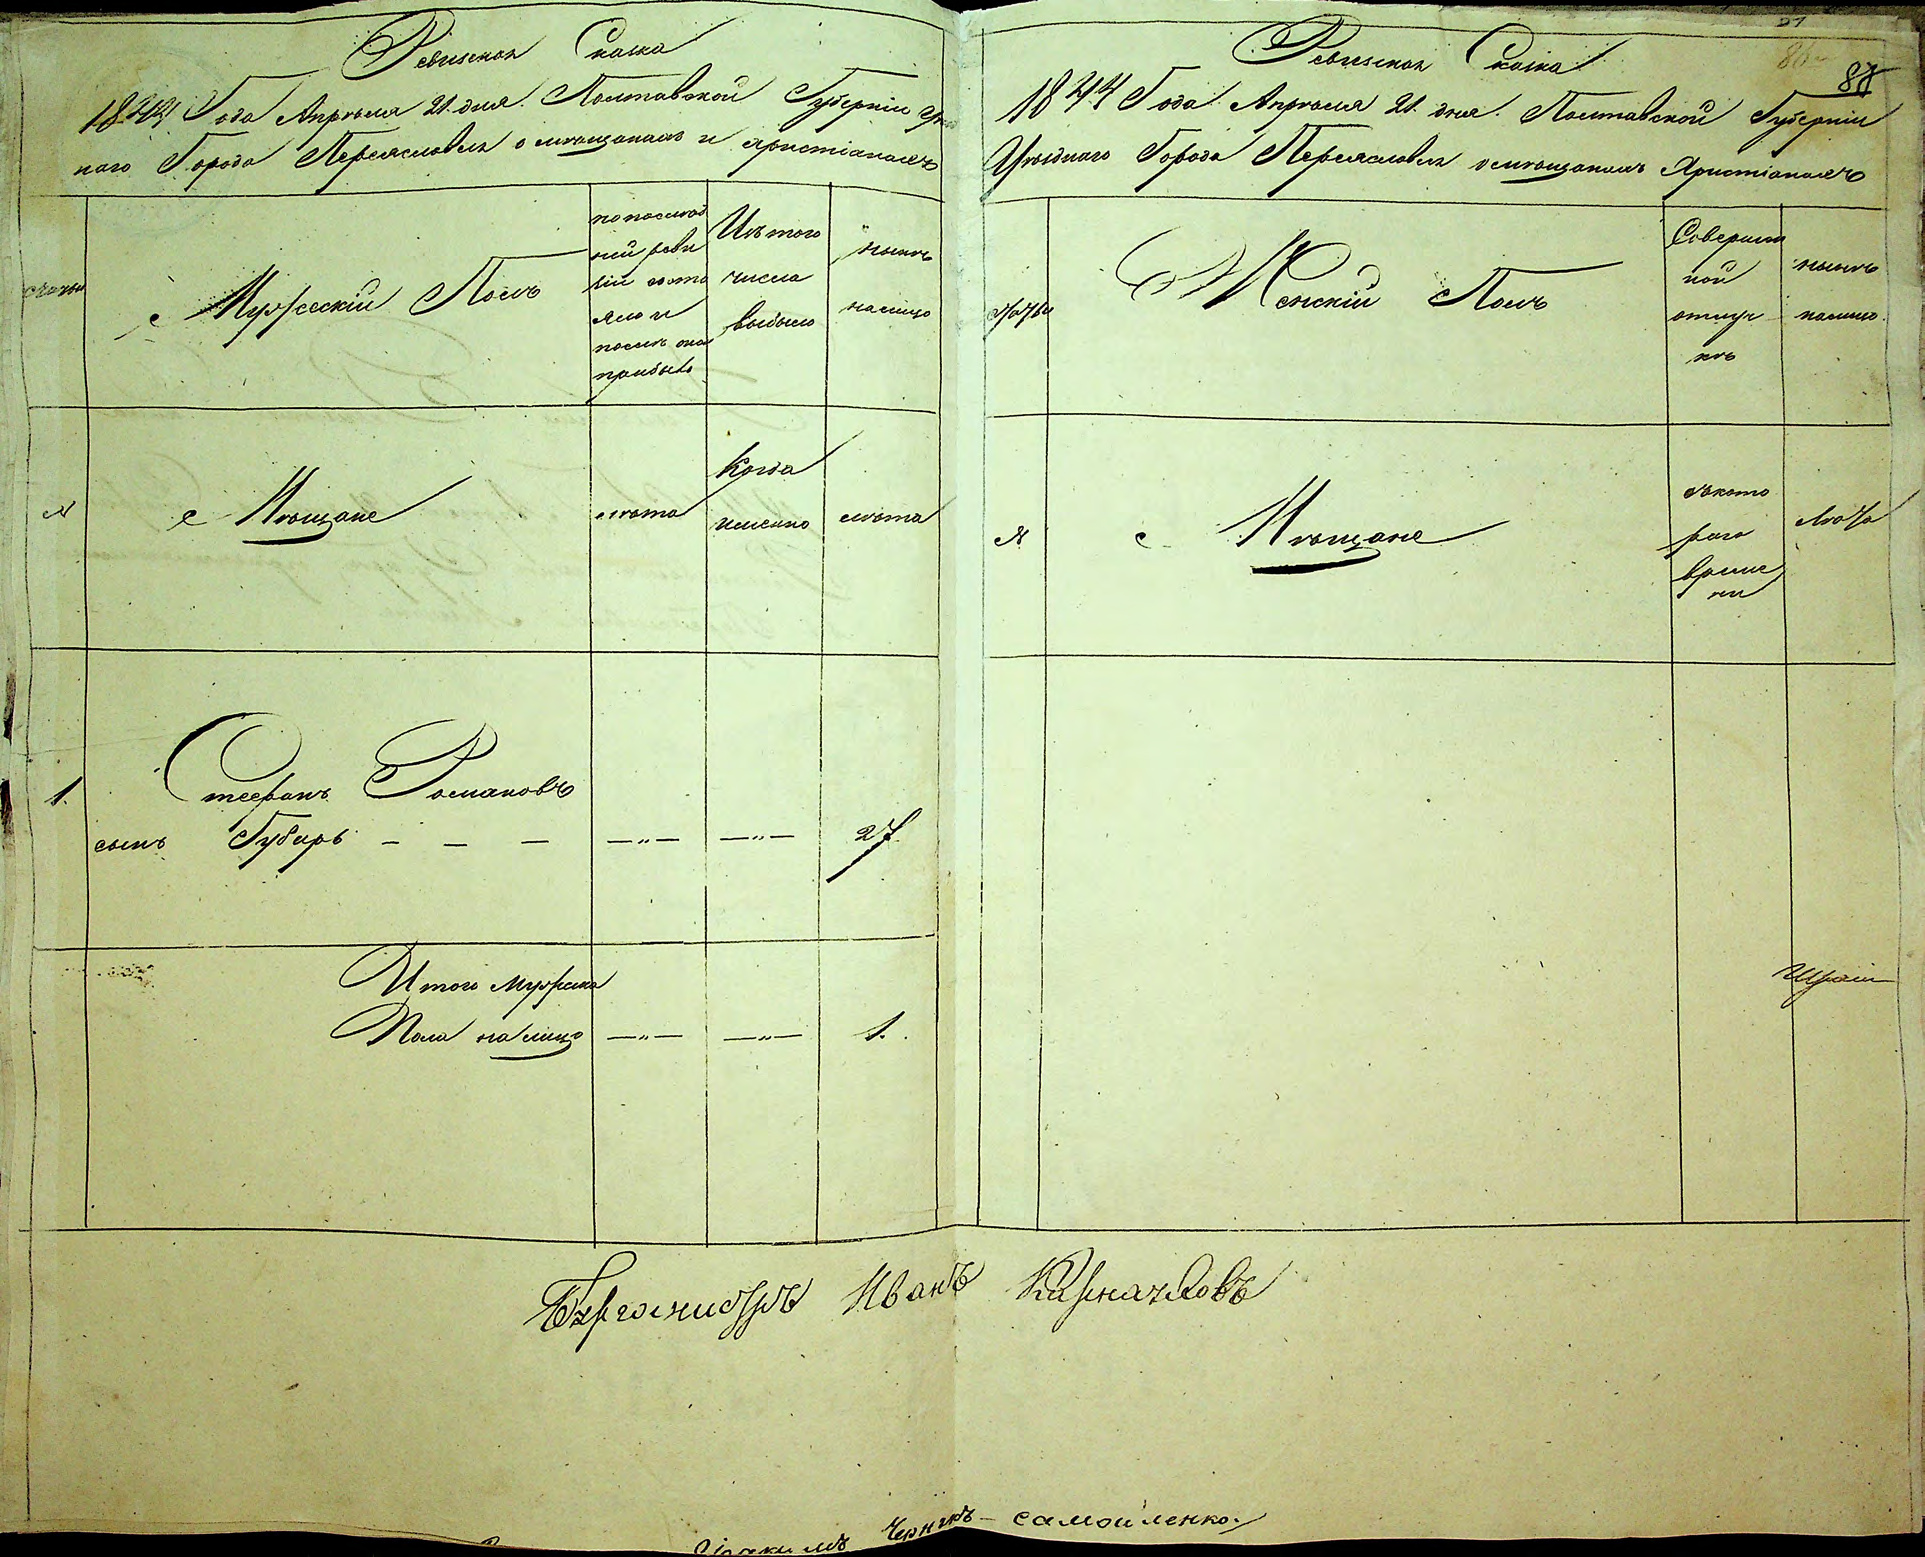 Ревизская Сказка
1844 Года Апрѣля 21. дня. Полтавской Губерніи Уѣзд
наго Города Переяслова о мѣщанахъ и христіанахъ
Мужескій Полъ
по послѣд
ней реви
зіи состо
яло и
послѣ она
прибыло
Изъ того
числа
выбыло
нынѣ
налицо
№
Мѣщане
лѣта
Когда
именно
лѣта
1.
Стефанъ Романовъ
сынъ Губарь — — — —"— —"— 27
Итого мужеска
Пола налицо —"— —"— 1.
87
Ревизская Сказка
1844 Года Апрѣля 21. дня. Полтавской Губерніи
Уѣзднаго Города Переяслова о мѣщанахъ Христіанахъ
Женскій Полъ
Времен
ной
отлуч
кѣ
нынѣ
налицо.
№
Мѣщане
съ кото
раго
време
ни
лѣта
Бургомистръ Иванъ
Чернякъ-самойленко.